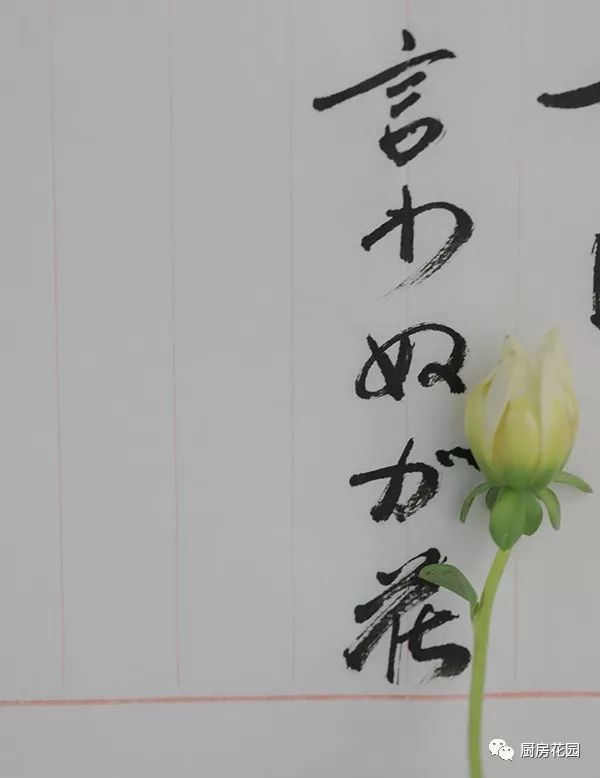 言わぬが花
厨房花园